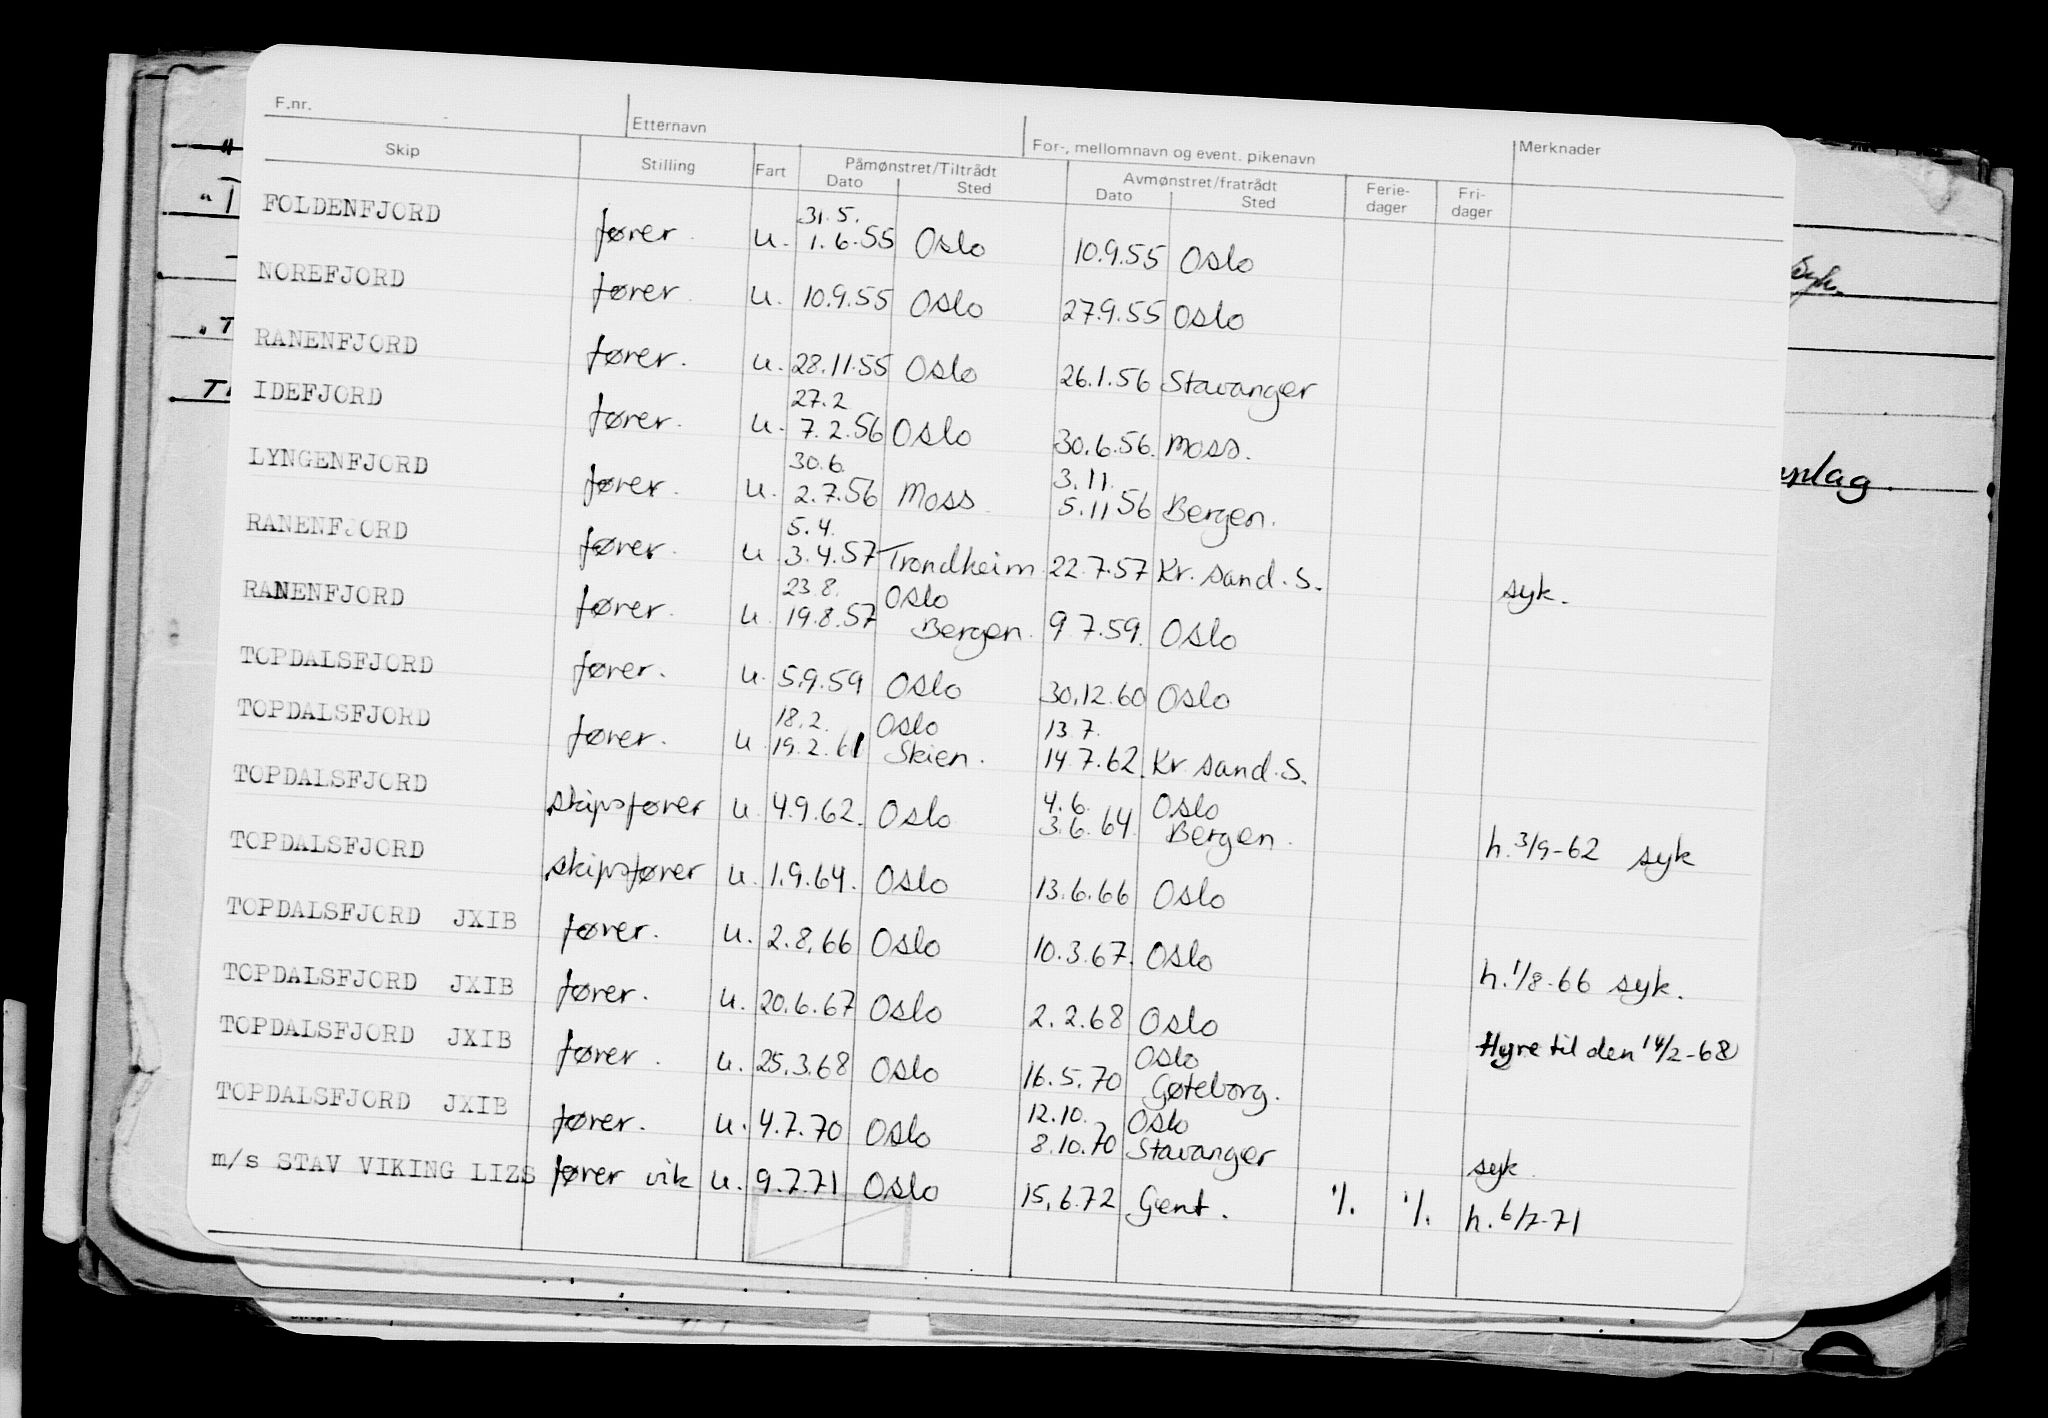 F.nr. Etternavn For-, mellomnavn og event. pikenavn Merknader
Skip Stilling Fart Påmønstret/Tiltrådt Avmønstret/fratrådt Ferie- Fri-
Dato Sted Dato Sted dager dager
31.5.
FOLDENFJORD fører. u. 1.6.55 Oslo 10.9.55 Oslo
NOREFJORD fører. u. 10.9.55 Oslo 27.9.55 Oslo
RANENFJORD fører. u. 28.11.55 Oslo 26.1.56 Stavanger
27.2
IDEFJORD fører. u. 7.2.56 Oslo 30.6.56. Moss.
30.6. 3.11.
LYNGENFJORD fører. u. 2.7.56 Moss 5.11 56 Bergen.
5.4.
RANENFJORD fører. u. 3.4.57 Trondheim 22.7.57 Kr. sand. S. syk.
23.8. Oslo
RANENFJORD fører. u. 19.8.57 Bergen. 9 7.59. Oslo
TOPDALSFJORD fører. u. 5.9.59 Oslo 30.12.60 Oslo
18.2. Oslo 13.7.
TOPDALSFJORD fører. u. 19.2.61 Skien. 14.7.62. Kr. sand. S.
4.6. Oslo
TOPDALSFJORD skipsfører u. 4.9.62. Oslo 3.6.64. Bergen. h. 3/9-62 syk
TOPDALSFJORD skipsfører u. 1.9.64. Oslo 13.6.66 Oslo
TOPDALSFJORD JXIB fører. u. 2.8.66 Oslo 10.3.67. Oslo h. 1/8-66 syk.
TOPDALSFJORD JXIB fører. u. 20.6.67 Oslo 2.2.68 Oslo Hyre til den 14/2-68
Oslo
TOPDALSFJORD JXIB fører. u. 25.3.68 Oslo 16.5.70 Gøteborg.
12.10. Oslo
TOPDALSFJORD JXIB fører. u. 4.7.70 Oslo 8.10.70 Stavanger syk.
m/s STAV VIKING LIZS fører vik u. 9.7.71 Oslo 15.6.72 Gent. 1/. 1/. h. 6/7-71
Syk.